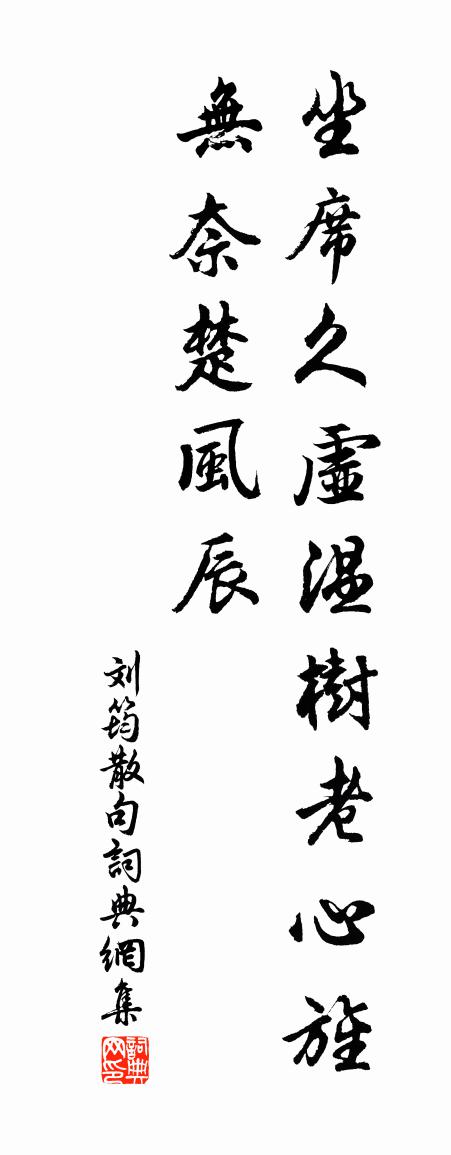 坐席久虛温樹老心旌
無奈楚風辰
刘筠散句詞典網集
詞典网印